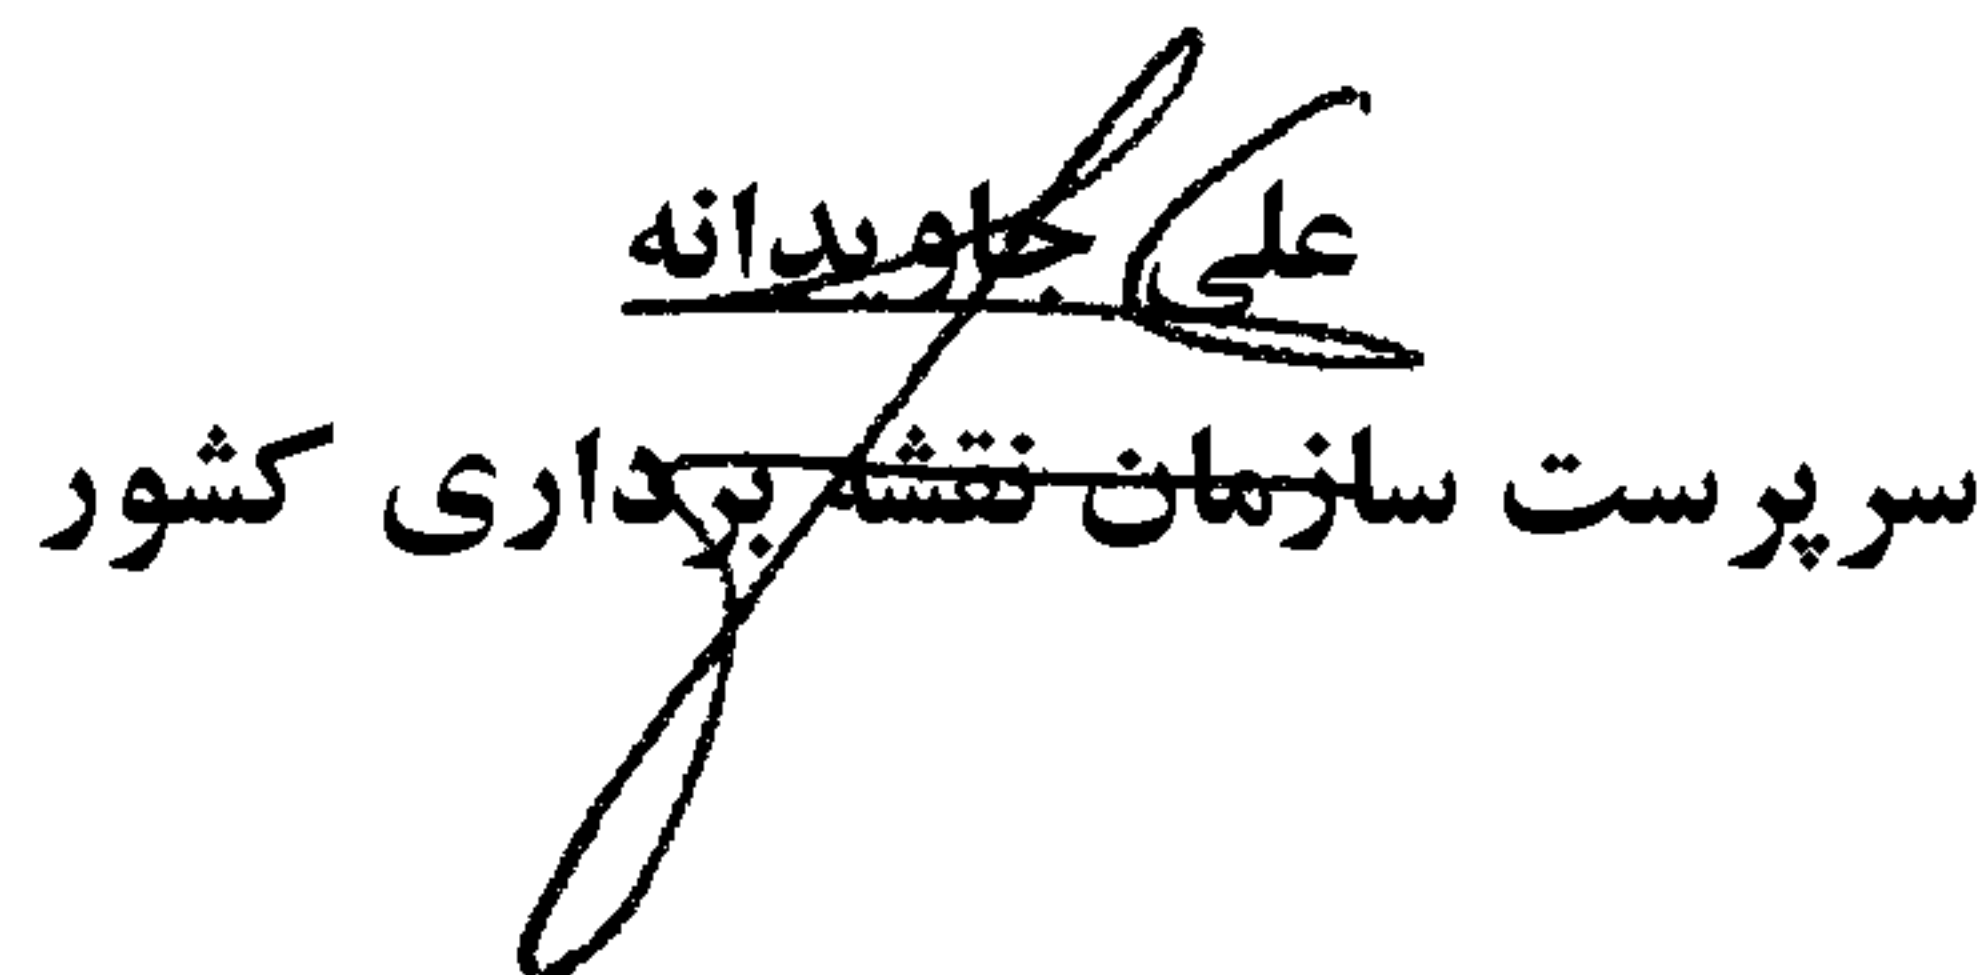 علی جاویدانه
سرپرست سازمان نقشه برداری کشور